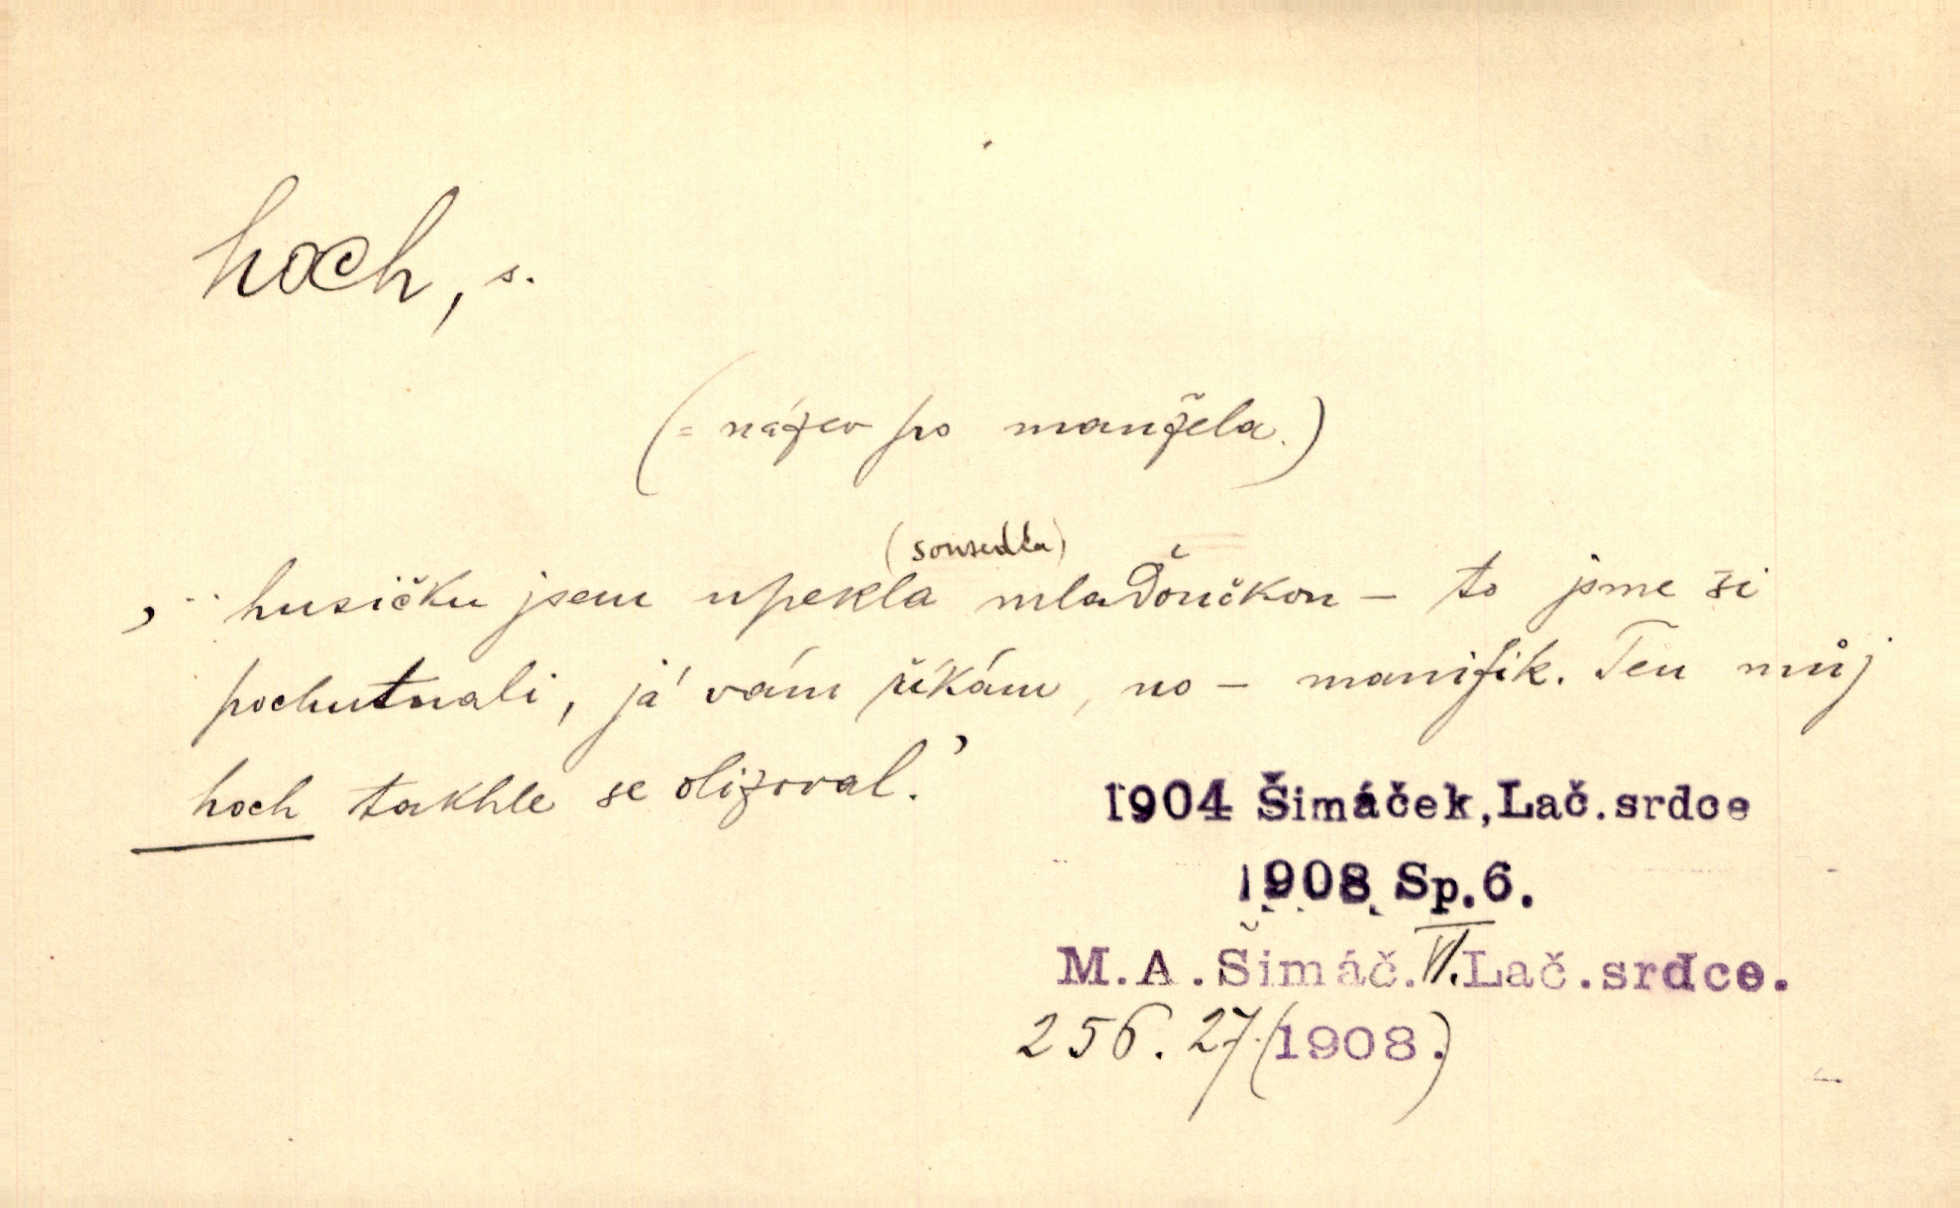 hoch, s.
(= název pro manžela.)
(sousedka)
, .. husičku jsem upekla mlaďoučkou – to jsme si
pochutnali, já vám říkám, no – manifik. Ten můj
hoch takhle se olizoval.'
1904 Šimáček, Lač. srdce
1908 Sp.6.
M.A.Šimáč. VI. Lač.srdce.
256. 27. (1908.)